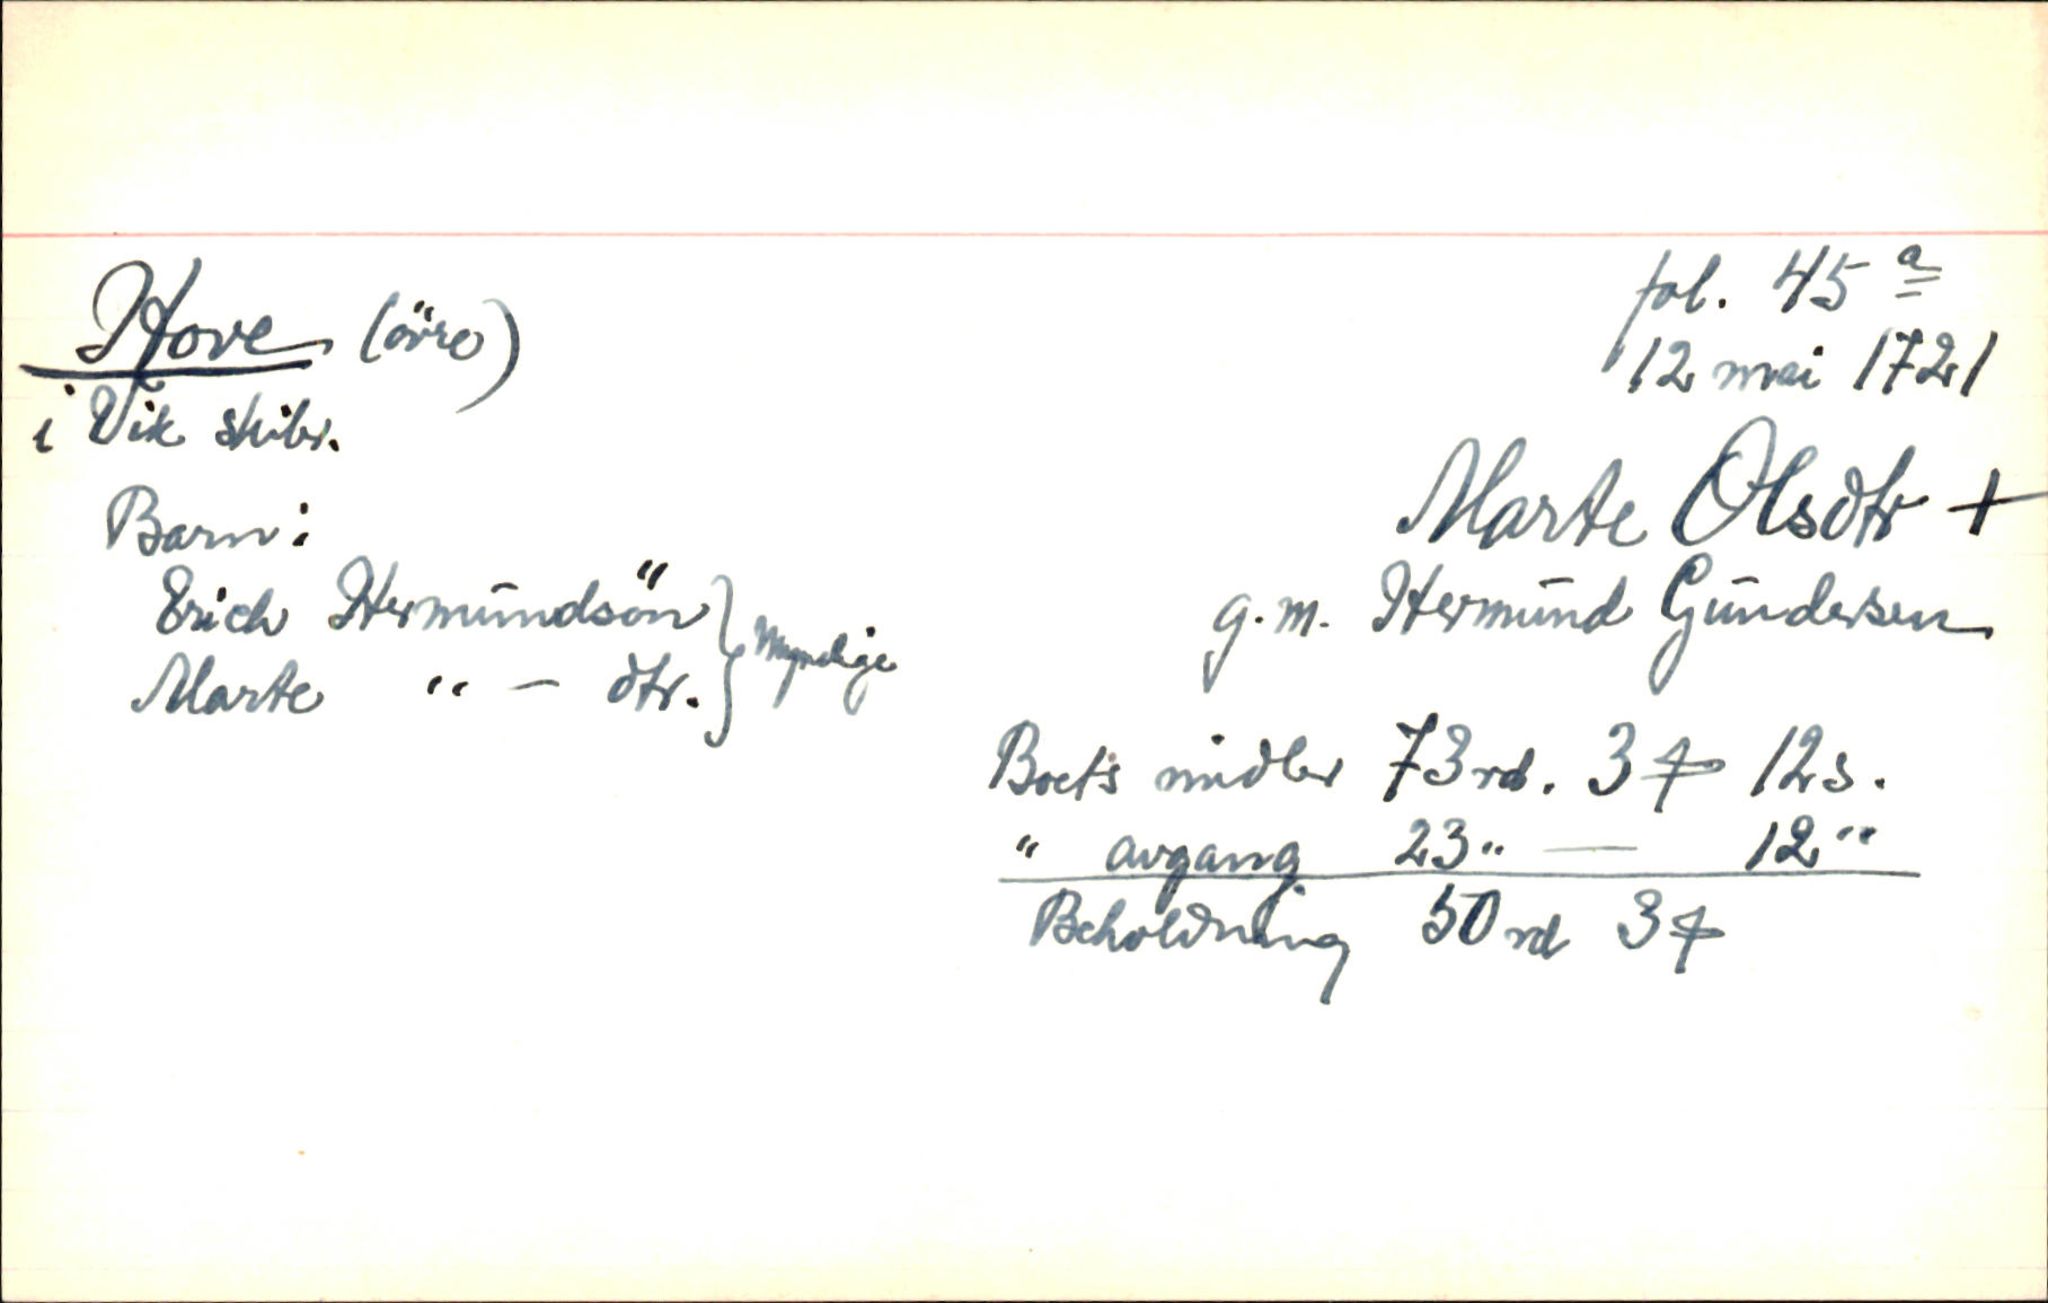 Hove (övre)
i Vik skibr.
Barn:
Erich Hermundsön
Marte " - dtr. } Myndige
fol. 45 a
12 mai 1721
Marte Olsdtr +
g.m. Hermund Gundersen
Boets midler 73 rd. 3 ꝗ 12 s.
" avgang 23 " — 12 "
Beholdning 50 rd 3 ꝗ